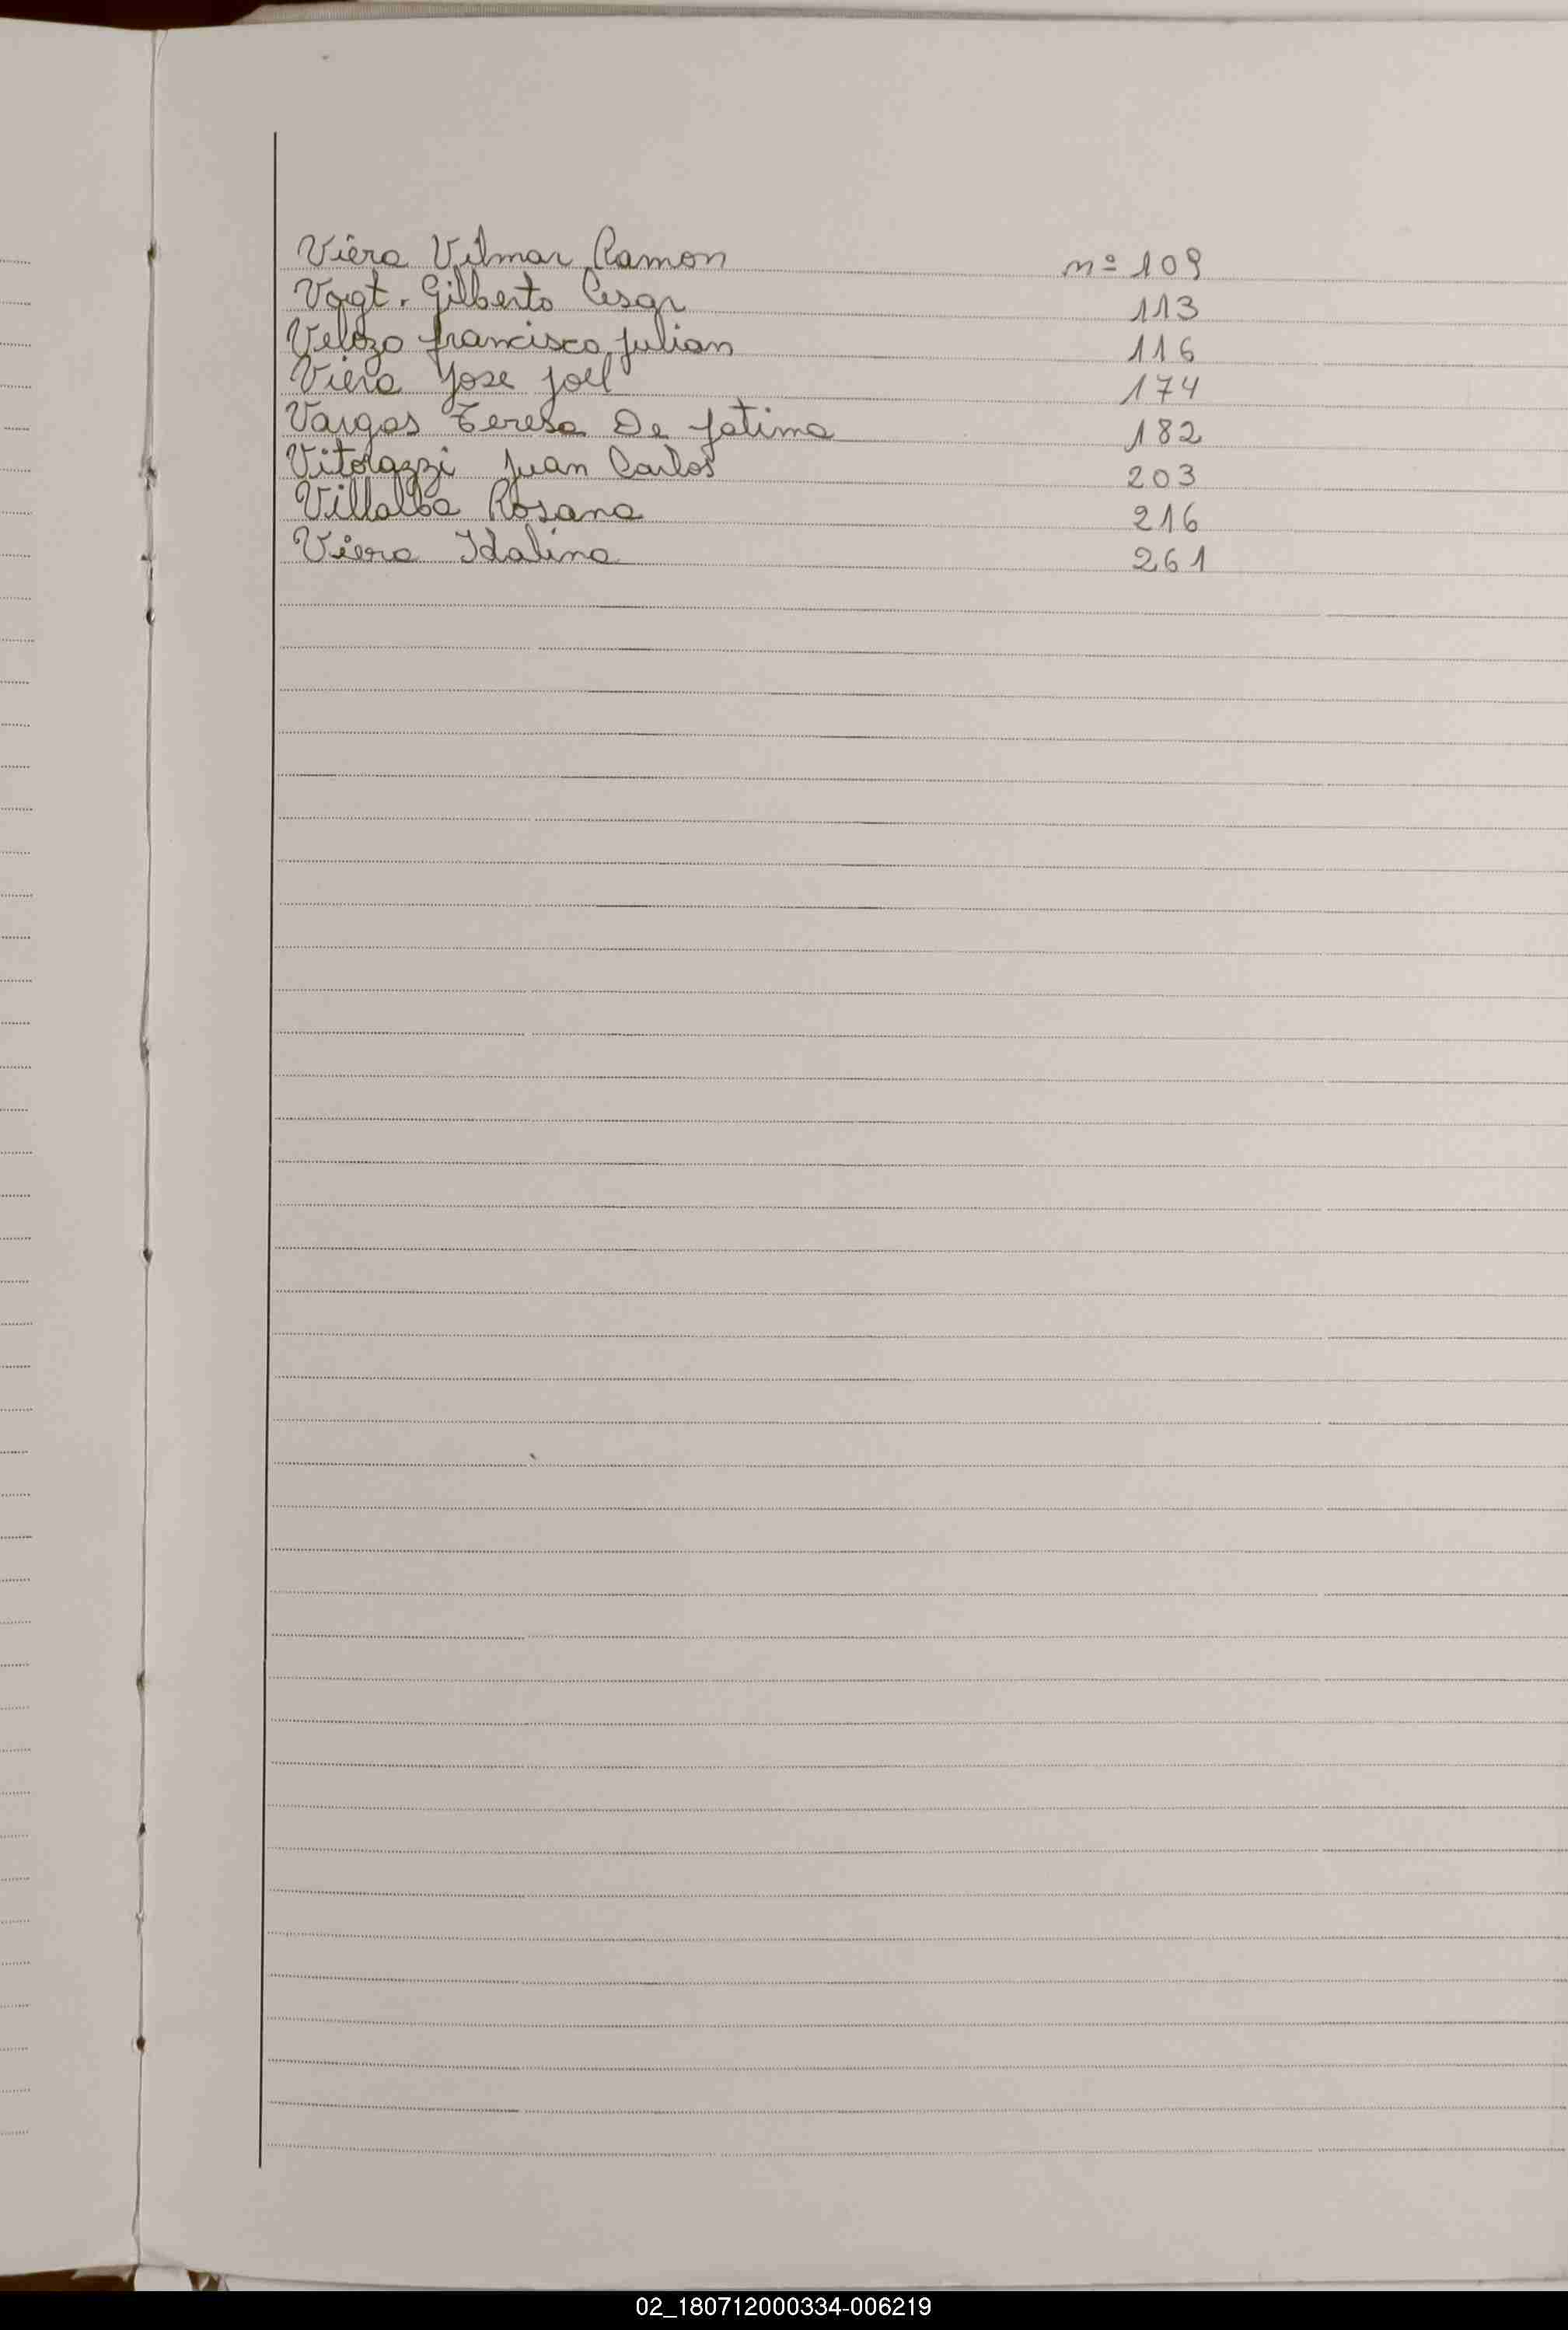 Viera Vilmar Ramon nº 109
Vogt. Gilberto Cesar 113
Velozo francisco Julian 116
Viera Jose Joel 174
Vargas Teresa De Fatima 182
Vitolazzi Juan Carlos 203
Villalba Rosana 216
Viera Idalina 261
02_180712000334-006219